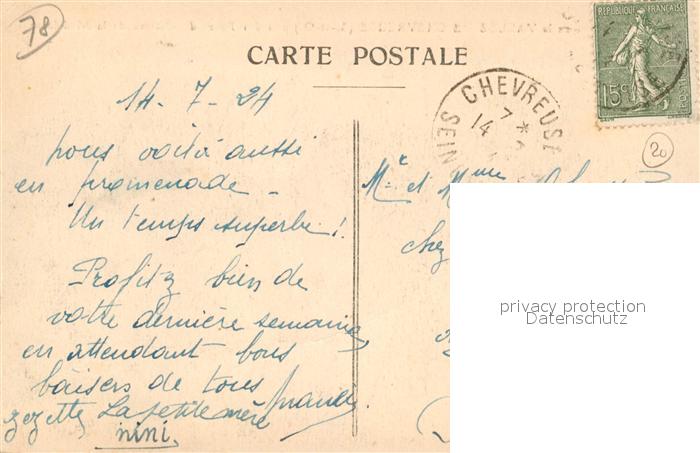 78
CARTE POSTALE
RÉPUBLIQUE FRANÇAISE
15c
POSTES
CHEVREUSE
7 *
14
SEINE
20
14-7-24
nous voilà aussi
en promenade -
Un temps superbe!
Profitez bien de
votre dernière semaine,
en attendant bons
baisers de tous
gezette La petite mère
nini.
Mr et Mme
chez
privacy protection
Datenschutz